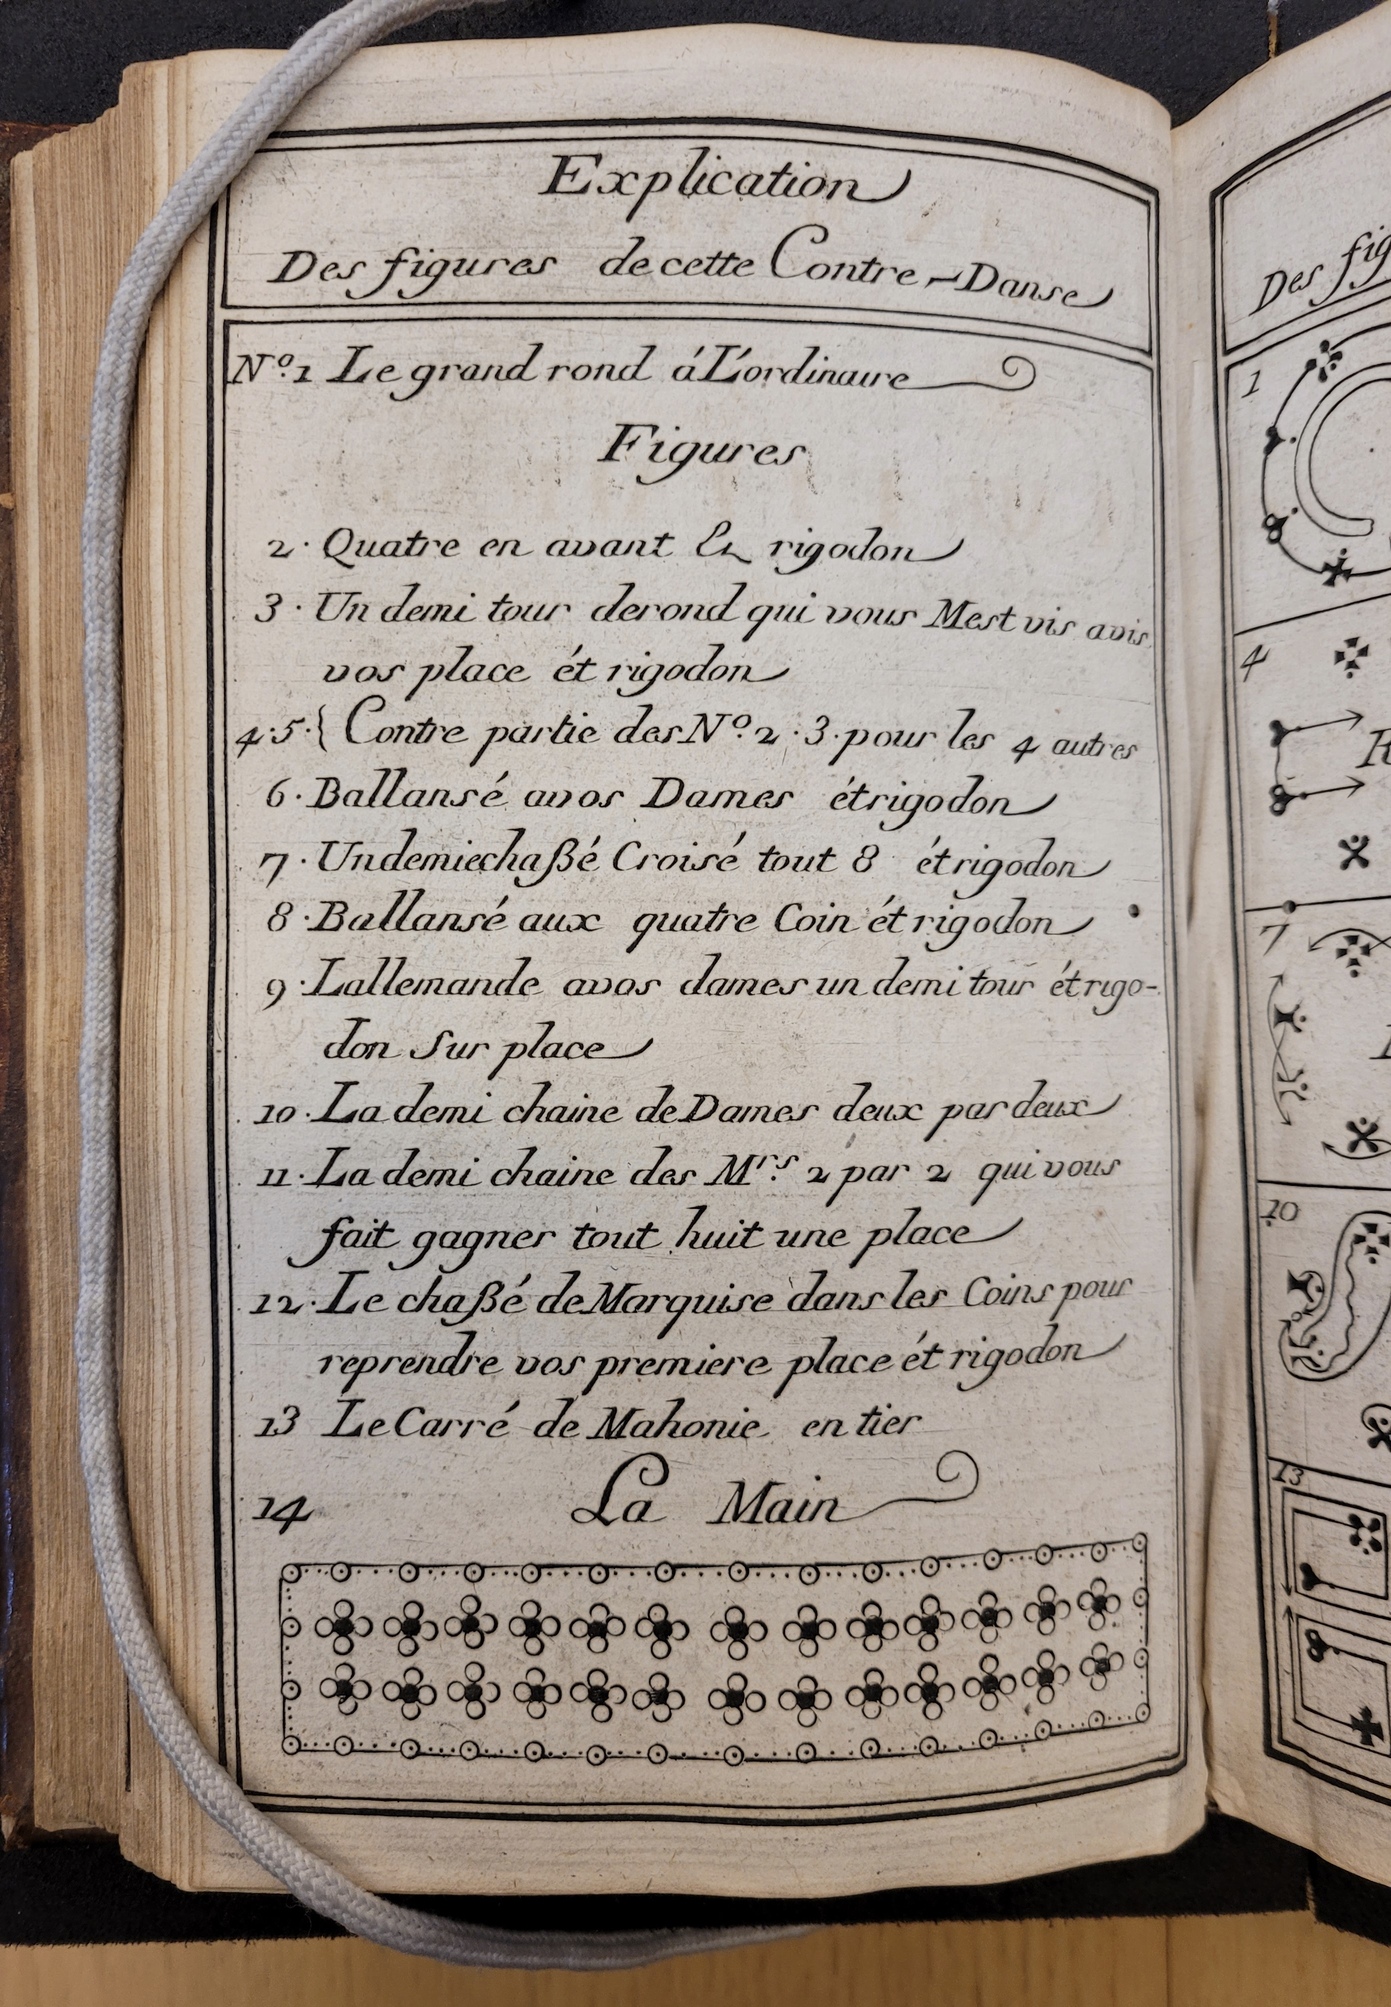 Explication
Des figures de cette Contre-Danse
N.º 1 Le grand rond á L'ordinaire
Figures
2. Quatre en avant & rigodon
3. Un demi tour derond qui vous Mest vis avis
vos place ét rigodon
4.5.{ Contre partie des N.º 2.3. pour les 4 autres
6. Ballansé avos Dames ét rigodon
7. Un demie chaßé Croisé tout 8 ét rigodon
8. Ballansé aux quatre Coin ét rigodon
9. Lallemande avos dames un demi tour ét rigo-
don Sur place
10. La demi chaine de Dames deux par deux
11. La demi chaine des M.rs 2 par 2 qui vous
fait gagner tout huit une place
12. Le chaßé de Marquise dans les Coins pour
reprendre vos premiere place ét rigodon
13 Le Carré de Mahonie en tier
14 La Main
Des fig
1
4
R
7
10
13